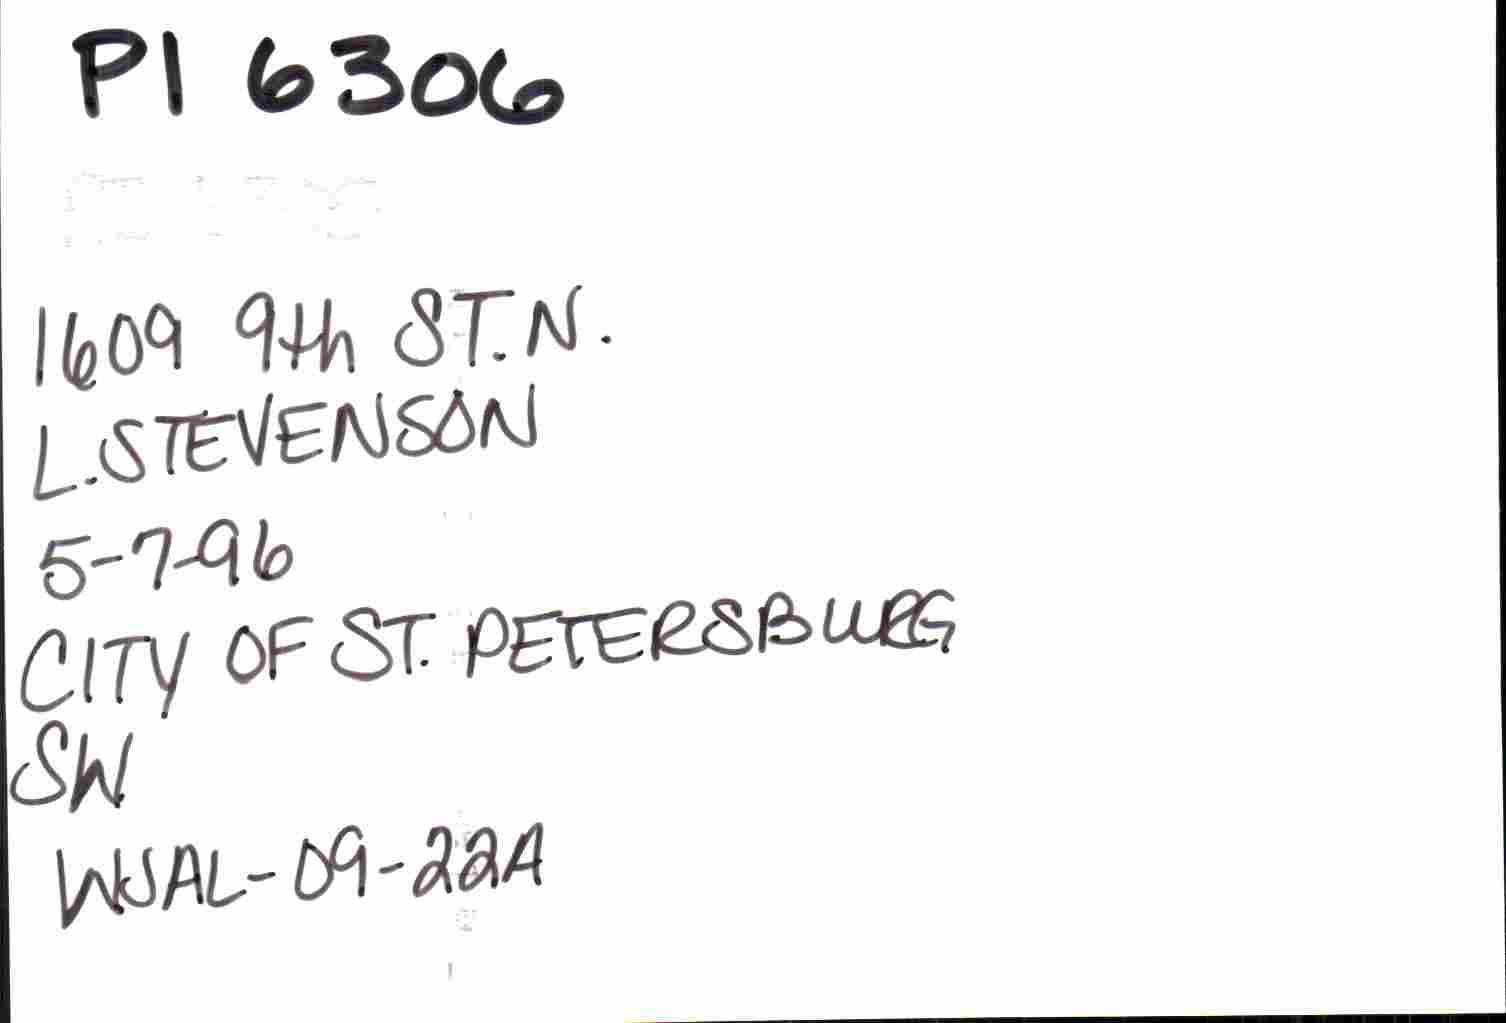 PI 6306
1609 9th ST. N.
L. STEVENSON
5-7-96
CITY OF ST. PETERSBURG
SW
WJAL-09-22A